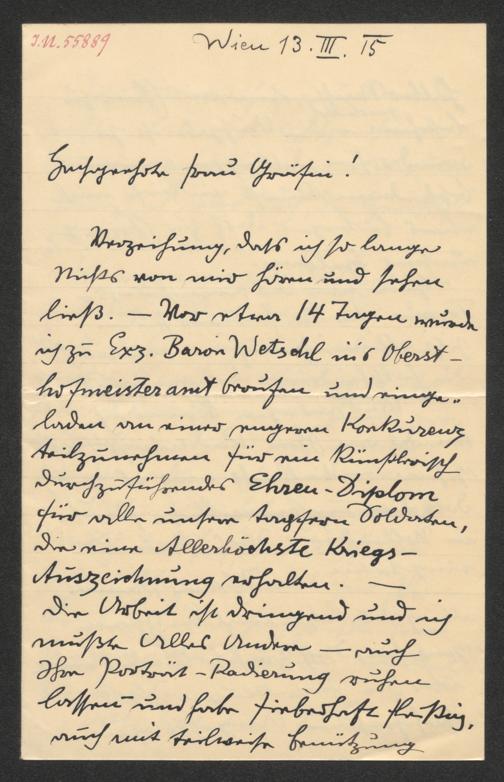 I.N. 55889
Wien 13. III. 15
Hochgeehrte Frau Gräfin!
Verzeihung, daß ich so lange
Nichts von mir hören und sehen
ließ. — Vor etwa 14 Tagen wurde
ich zu Exz. Baron Wetschl ins Oberst-
hofmeisteramt berufen und einge-
laden an einer engeren Konkurenz
teilzunehmen für ein künstlerisch
durchzuführendes Ehren-Diplom
für alle unsere tapferen Soldaten,
die eine Allerhöchste Kriegs-
Auszeichnung erhalten. —
Die Arbeit ist dringend und ich
mußte Alles Andere — auch
Ihre Porträt-Radierung ruhen
lassen und habe fieberhaft fleißig,
auch mit teilweise Benützung